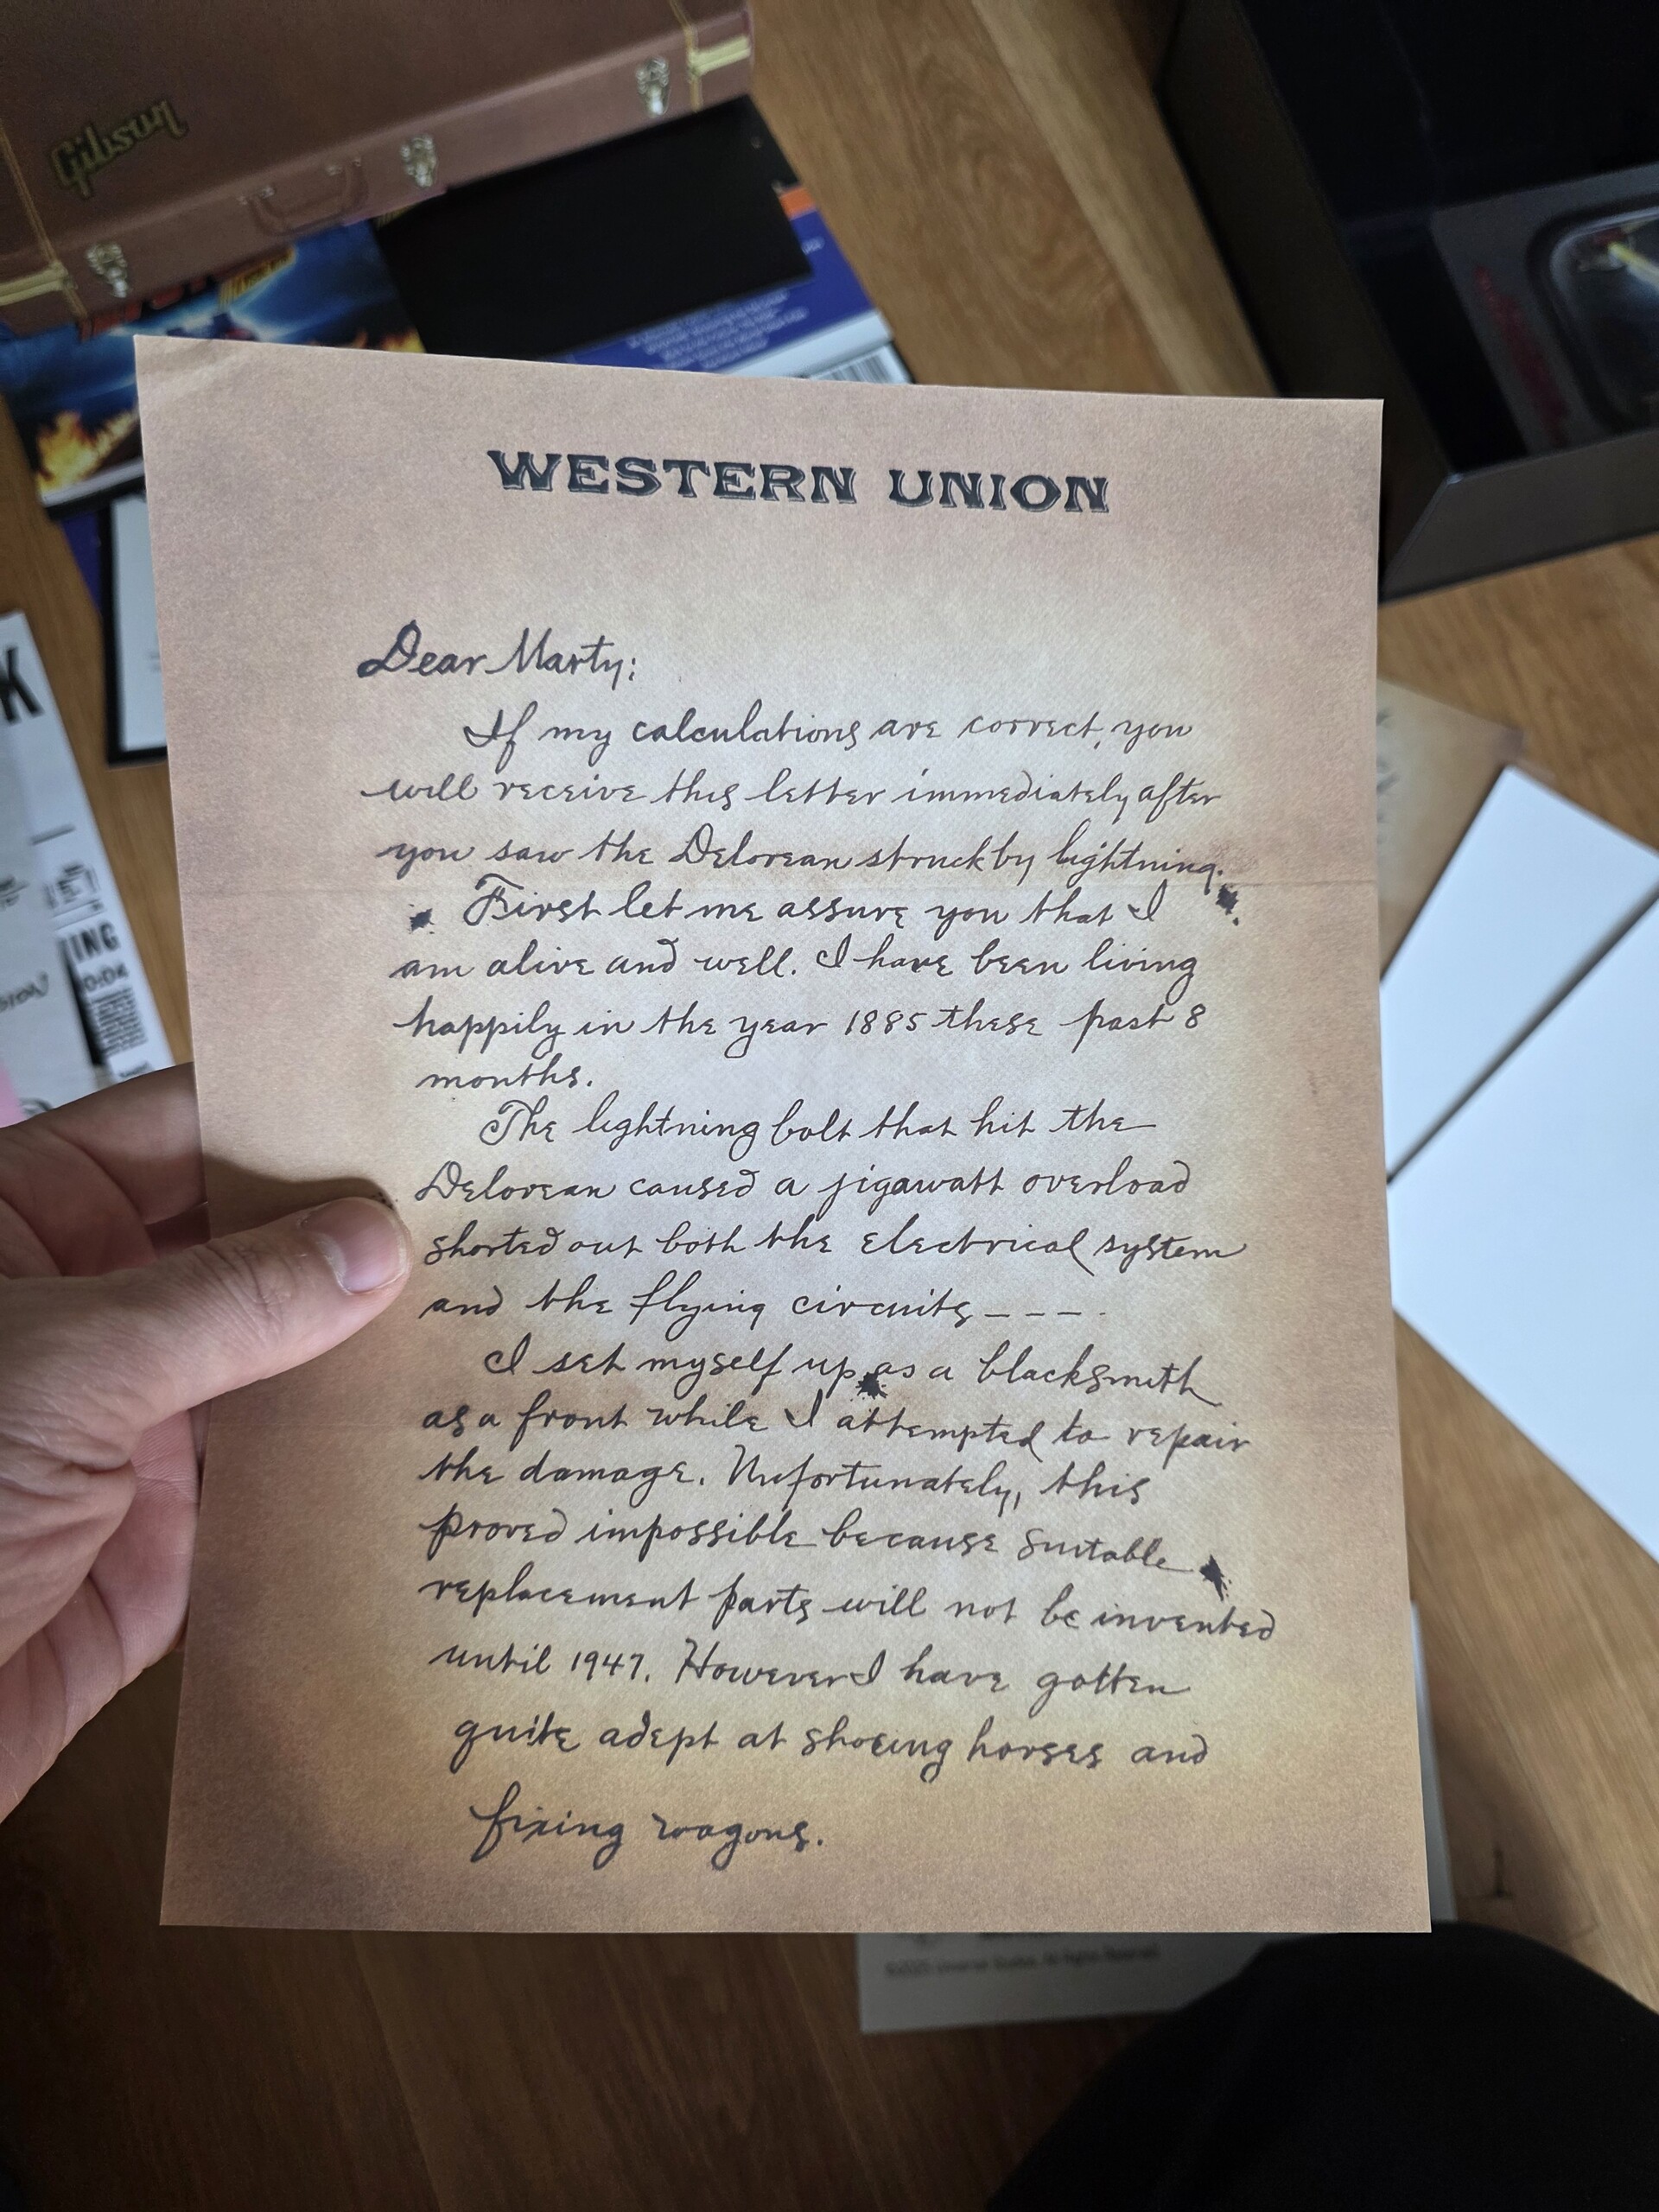 Gibson
WESTERN UNION
Dear Marty:
If my calculations are correct, you
will receive this letter immediately after
you saw the Delorean struck by lightning.
First let me assure you that I
am alive and well. I have been living
happily in the year 1885 these past 8
months.
The lightning bolt that hit the
Delorean caused a jigawatt overload
shorted out both the electrical system
and the flying circuits----
I set myself up as a blacksmith
as a front while I attempted to repair
the damage. Unfortunately, this
proved impossible because suitable
replacement parts will not be invented
until 1947. However I have gotten
quite adept at shoeing horses and
fixing wagons.
K
ING
10:04